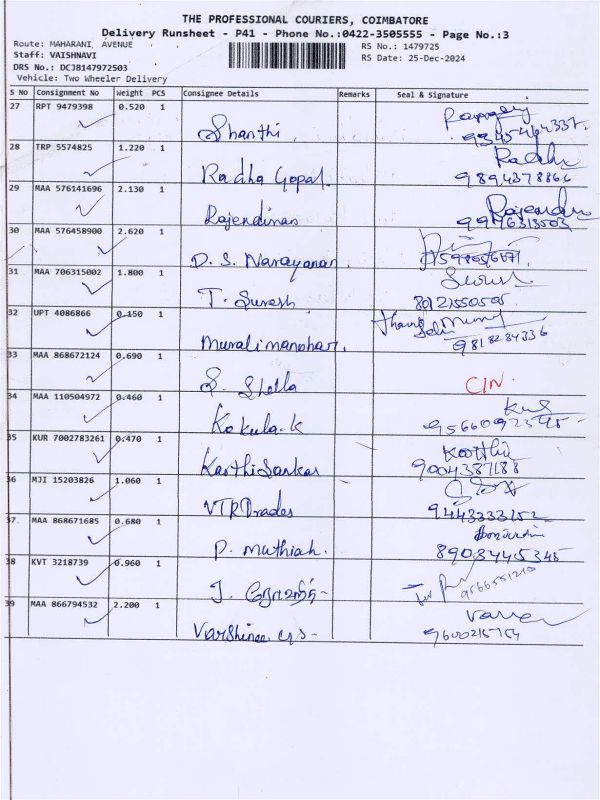 THE PROFESSIONAL COURIERS, COIMBATORE
Delivery Runsheet - P41 - Phone No.:0422-3505555 - Page No.:3
Route: MAHARANI, AVENUE
RS No.: 1479725
Staff: VAISHNAVI
RS Date: 25-Dec-2024
DRS No.: DCJB147972503
Vehicle: Two Wheeler Delivery
S No Consignment No Weight PCS Consignee Details Remarks Seal & Signature
27 RPT 9479398 0.520 1
Shanthi
28 TRP 5574825 1.220 1 Radha
Radha Gopal. 9894378866
29 MAA 576141696 2.130 1 Rajendra
Rajendiran
30 MAA 576458900 2.620 1
D. S. Narayanan.
31 MAA 706315002 1.800 1 Suresh
T. Suresh
32 UPT 4086866 0.150 1
Muralimanohar. 9818284336
33 MAA 868672124 0.690 1
S. Shella CIN.
34 MAA 110504972 0.460 1
Kokula.k
35 KUR 7002783261 0.470 1 Karthi
KarthiSankar 9004387188
36 MJI 15203826 1.060 1
VTR Trades
37 MAA 868671685 0.680 1
P. Muthiah. 8903445345
38 KVT 3218739 0.960 1
J.
39 MAA 866794532 2.200 1
Varshinee 9600215154